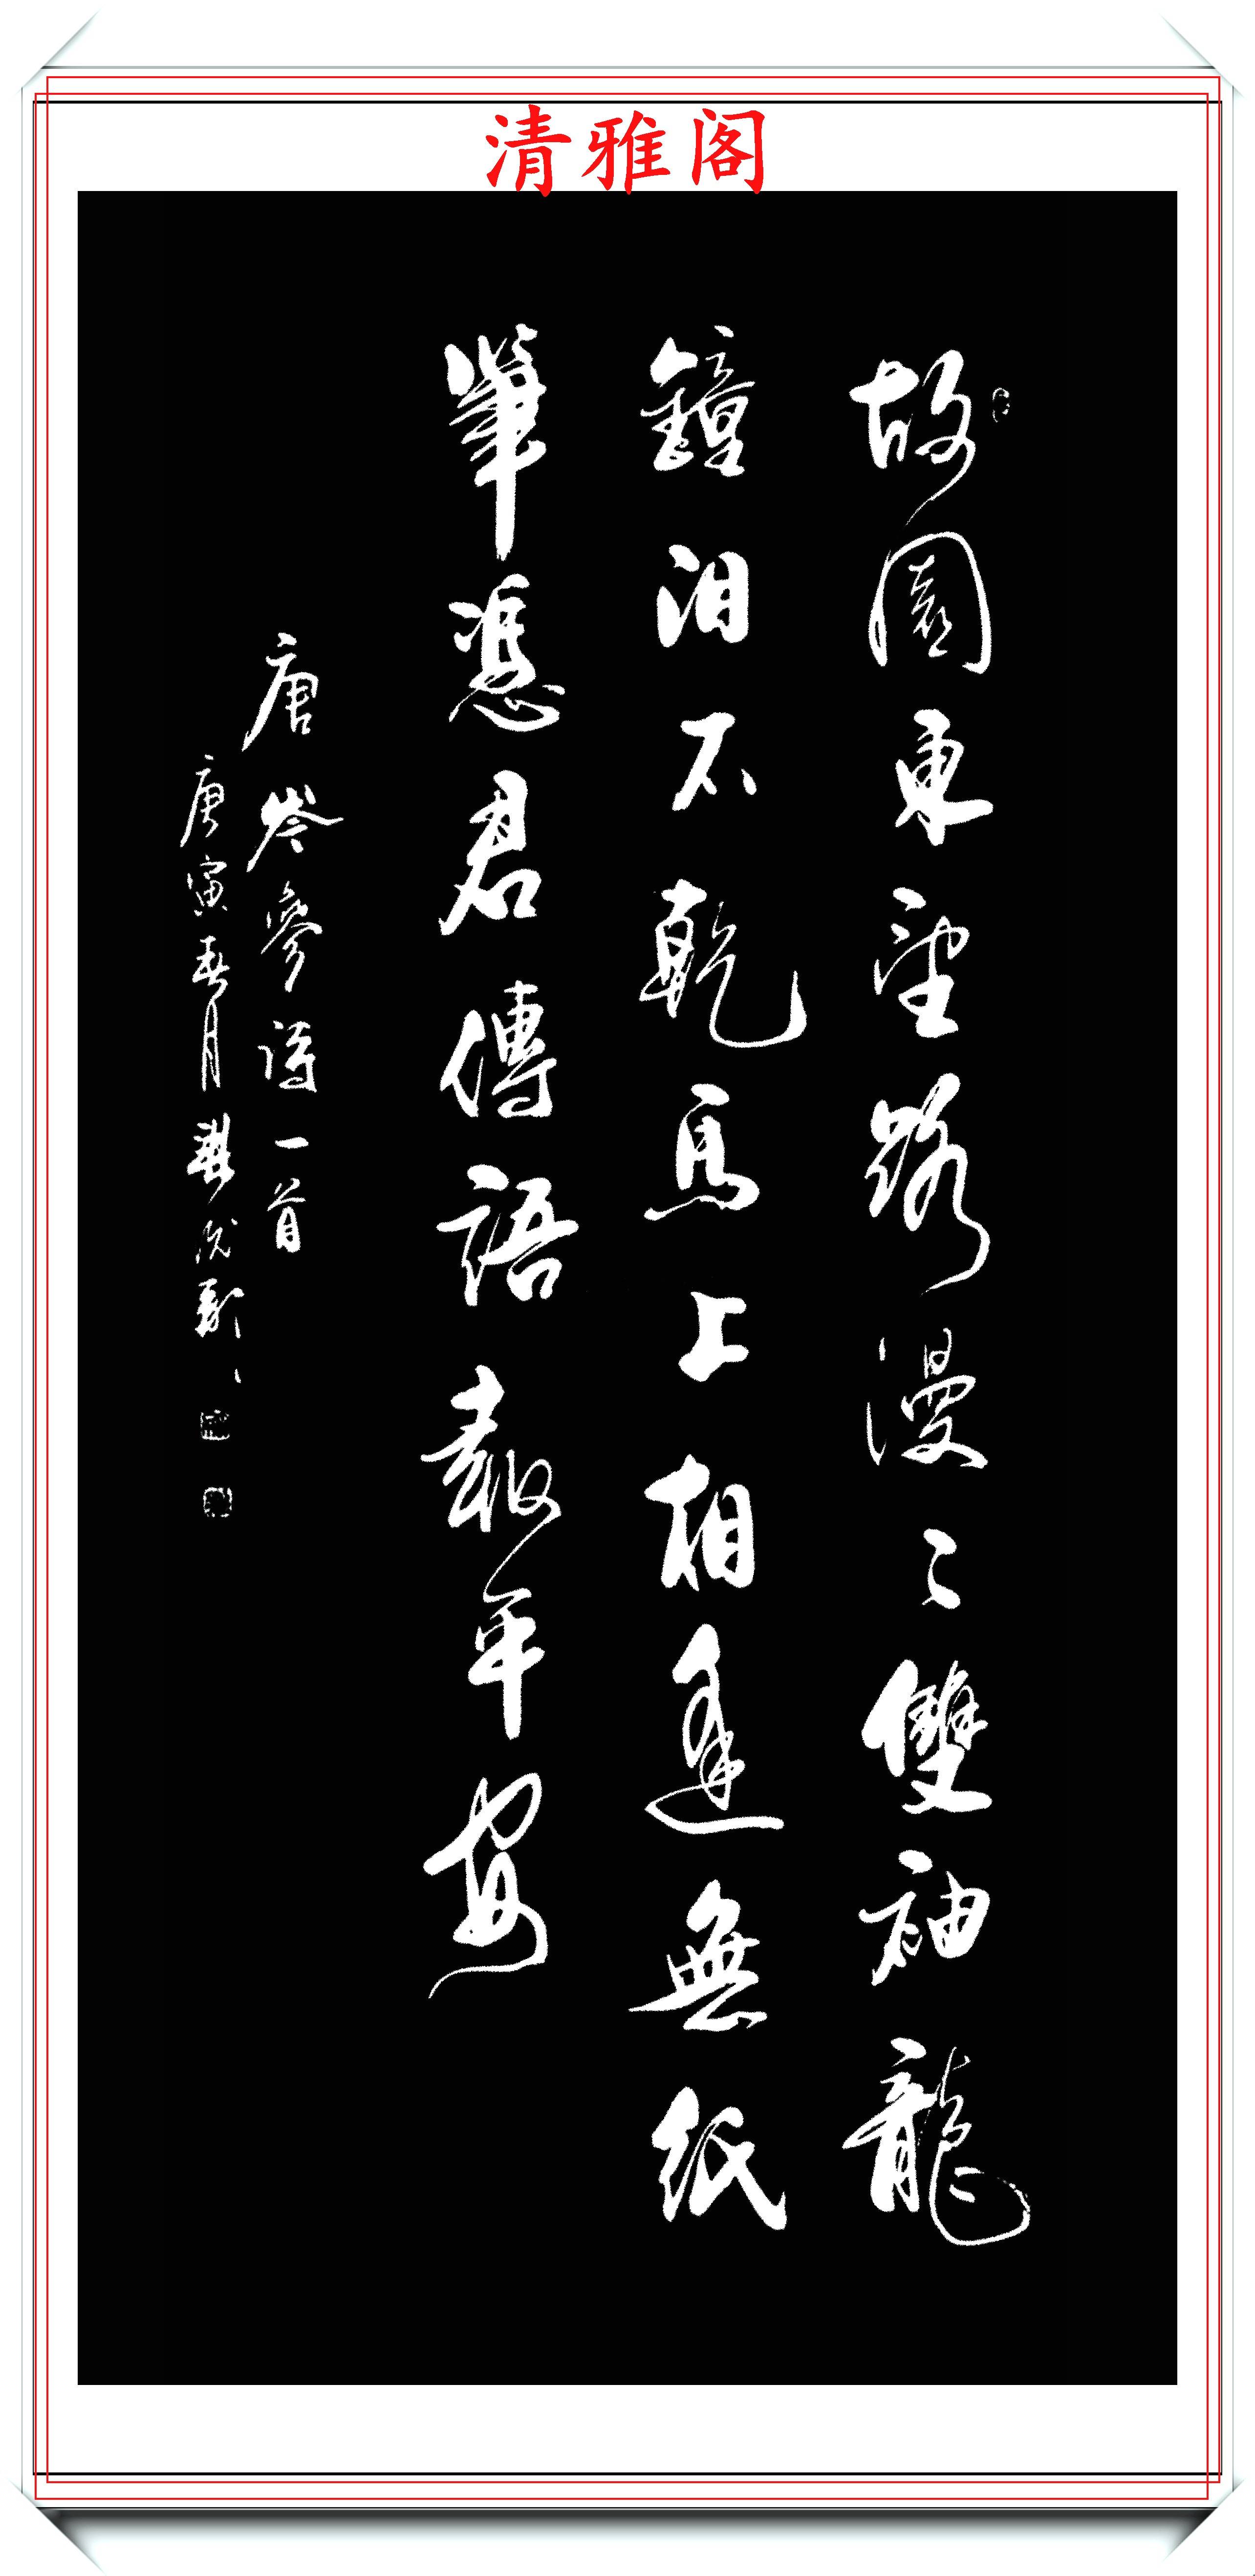 清雅阁
故園東望路漫〻雙袖龍
鐘泪不乾馬上相逢無紙
筆憑君傳語報平安
唐岑參詩一首
庚寅春月